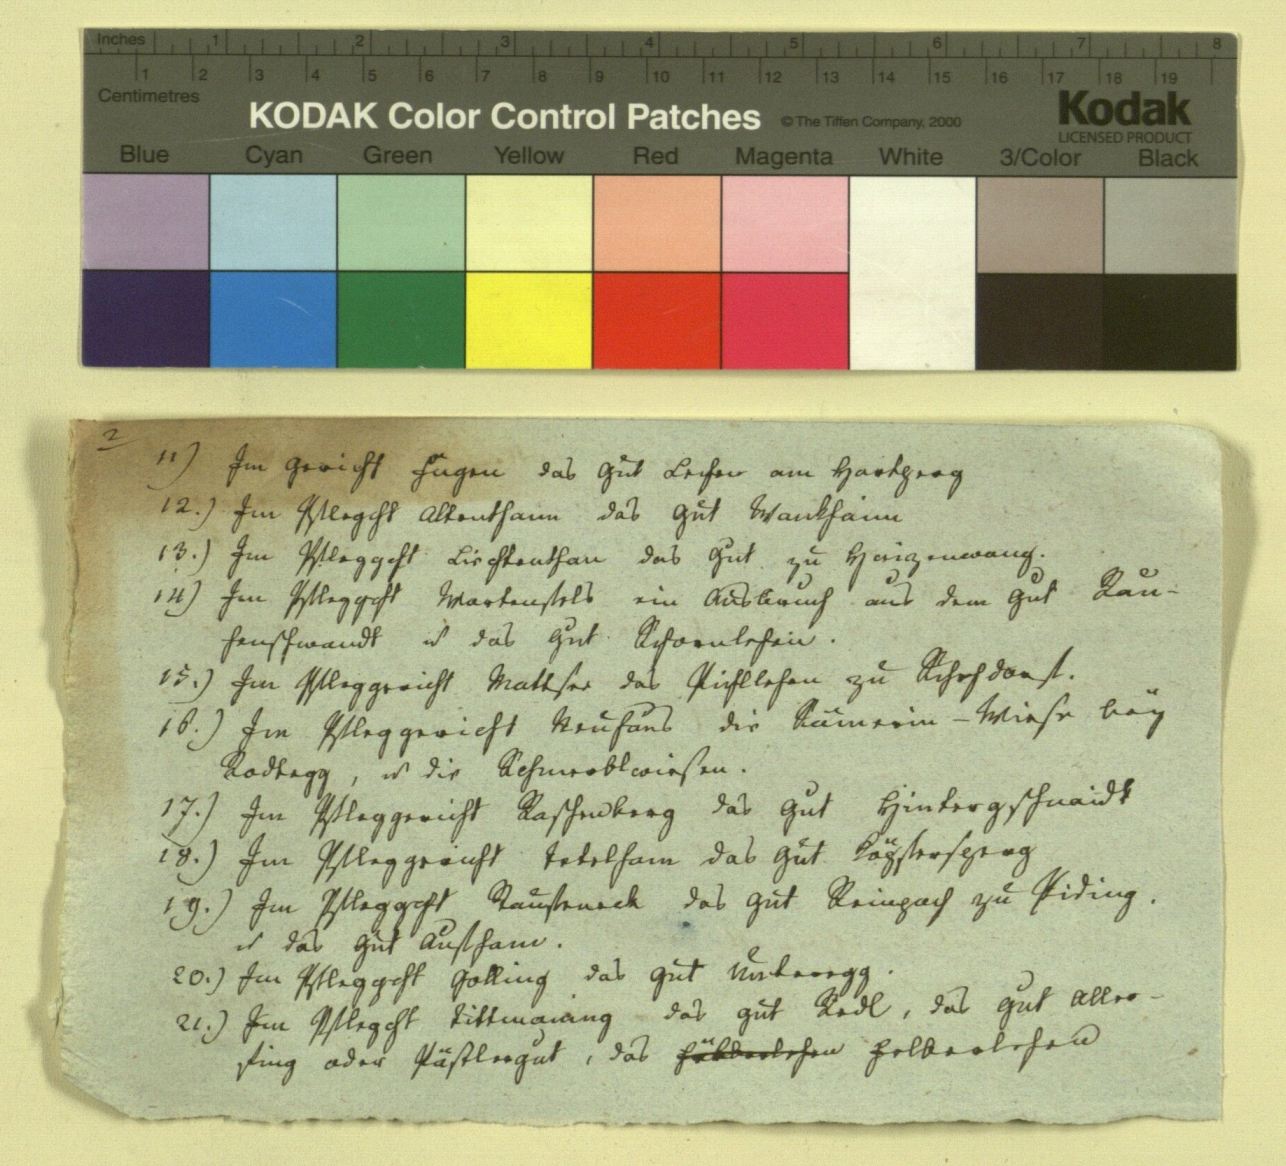 Inches 1 2 3 4 5 6 7 8
1 2 3 4 5 6 7 8 9 10 11 12 13 14 15 16 17 18 19
Centimetres
KODAK Color Control Patches © The Tiffen Company, 2000 Kodak
LICENSED PRODUCT
Blue Cyan Green Yellow Red Magenta White 3/Color Black
2
11) Im Gericht Hügen das Gut Lehen am Hartperg
12.) Im Pflegcht Altenthann das Gut Wankham
13.) Im Pfleggcht Liechtenthan das Gut zu Haizenwang.
14) Im Pfleggcht Wartenfels ein Ausbruch aus dem Gut Rau-
henschwandt u das Gut Schornlehen.
15.) Im Pfleggericht Mattsee das Pichllehen zu Schehdorf.
16.) Im Pfleggericht Neuhaus die Kämerin-Wiese bey
Radegg, u die Schmerblwiesen.
17.) Im Pfleggericht Raschenberg das Gut Hintergschnaidt
18.) Im Pfleggericht Tetelham das Gut
19.) Im Pfleggcht Stauffeneck das Gut Reinpach zu Piding.
u das Gut Aufham.
20.) Im Pfleggcht Golling das Gut
21.) Im Pflegcht Tittmoning das Gut Redl, das Gut Aller-
sting oder Pästlergut, das Felberlehen